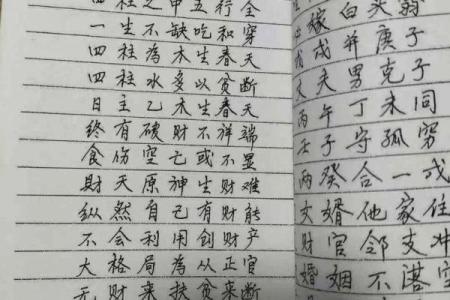 四柱之中五行全
一生不缺吃和穿
四柱為木生春天
四柱水多以贫断
日主乙木生春天
终有破财不祥端
食伤空亡或不显
财无原神生财难
纵然自己有财能
不会利用创财产
大格局為从正官
无财来扶贫来断
缘白头翁
戊戌并庚子
丈夫男克子
丙午丁未同
壬子守孤穷
两癸合一戊
女婿他家住
财官邻支冲
婚姻不湛空